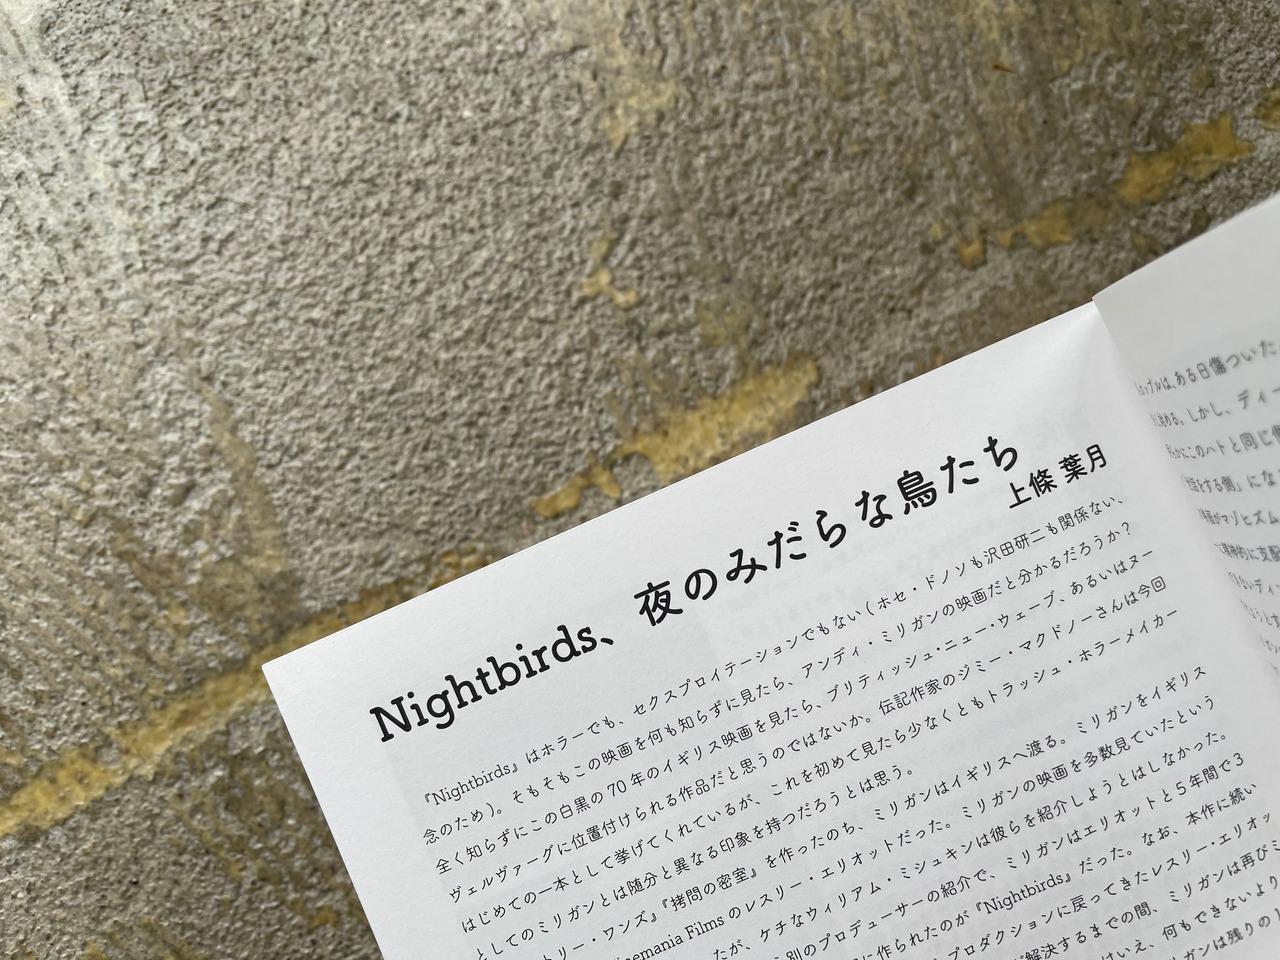 Nightbirds、夜のみだらな鳥たち
上條 葉月
『Nightbirds』はホラーでも、セクスプロイテーションでもない(ホセ・ドノソも沢田研二も関係ない、
念のため)。そもそもこの映画を何も知らずに見たら、アンディ・ミリガンの映画だと分かるだろうか?
全く知らずにこの白黒の70年のイギリス映画を見たら、ブリティッシュ・ニュー・ウェーブ、あるいはヌー
ヴェルヴァーグに位置付けられる作品だと思うのではないか。伝記作家のジミー・マクドノーさんは今回
はじめての一本として挙げてくれているが、これを初めて見たら少なくともトラッシュ・ホラーメイカー
としてのミリガンとは随分と異なる印象を持つだろうとは思う。
トリー・ワンズ』『拷問の密室』を作ったのち、ミリガンはイギリスへ渡る。ミリガンをイギリス
nemania Films のレスリー・エリオットだった。ミリガンの映画を多数見ていたという
たが、ケチなウィリアム・ミシュキンは彼らを紹介しようとはしなかった。
別のプロデューサーの紹介で、ミリガンはエリオットと5年間で3
に作られたのが『Nightbirds』だった。なお、本作に続い
プロダクションに戻ってきたレスリー・エリオッ
解決するまでの間、ミリガンは再びミ
はいえ、何もできないより
ガンは残りの
は、ある日傷ついた
める。しかし、ディー
にこのハトと同じ
をする側」にな
マゾヒズム
的に支配
ないディ